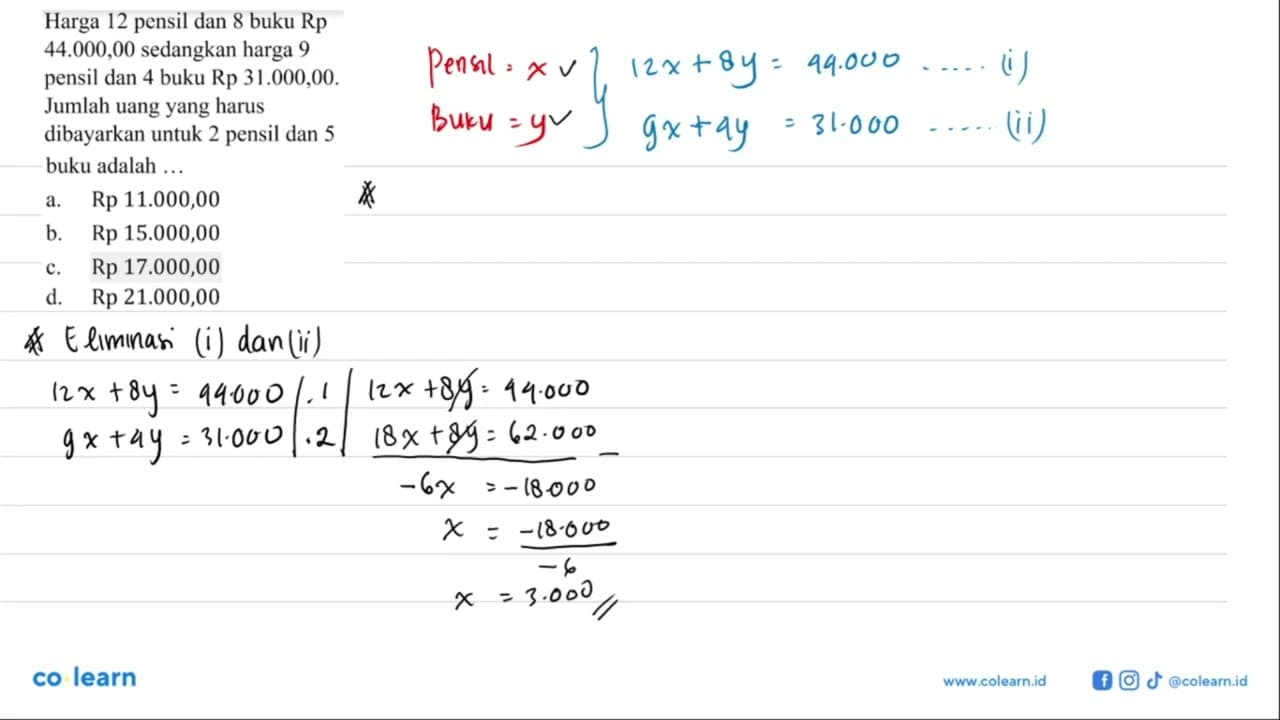 Harga 12 pensil dan 8 buku Rp
44.000,00 sedangkan harga 9
pensil dan 4 buku Rp 31.000,00.
Jumlah uang yang harus
dibayarkan untuk 2 pensil dan 5
buku adalah …
a. Rp 11.000,00
b. Rp 15.000,00
c. Rp 17.000,00
d. Rp 21.000,00
Pensil = x ✓ } 12x + 8y = 44.000 ..... (i)
Buku = y ✓ } 9x + 4y = 31.000 ..... (ii)
* Eliminasi (i) dan (ii)
12x + 8y = 44.000 | .1 | 12x + 8y = 44.000
9x + 4y = 31.000 | .2 | 18x + 8y = 62.000 –
-6x = -18.000
x = -18.000
-6
x = 3.000 //
co learn
www.colearn.id
@colearn.id